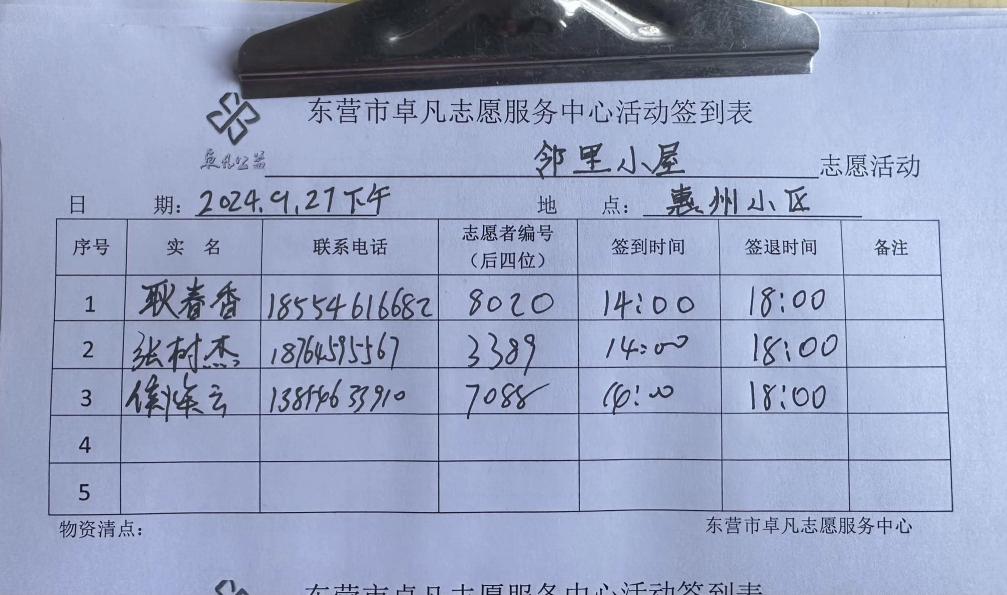 东营市卓凡志愿服务中心活动签到表
卓凡公益
邻里小屋 志愿活动
日 期: 2024.9.27下午 地 点: 惠州小区
序号 实 名 联系电话 志愿者编号（后四位） 签到时间 签退时间 备注
1 耿春香 18554616682 8020 14:00 18:00
2 张树杰 18764595567 3389 14:00 18:00
3 13854633910 7088 14:00 18:00
4
5
物资清点: 东营市卓凡志愿服务中心
东营市卓凡志愿服务中心活动签到表